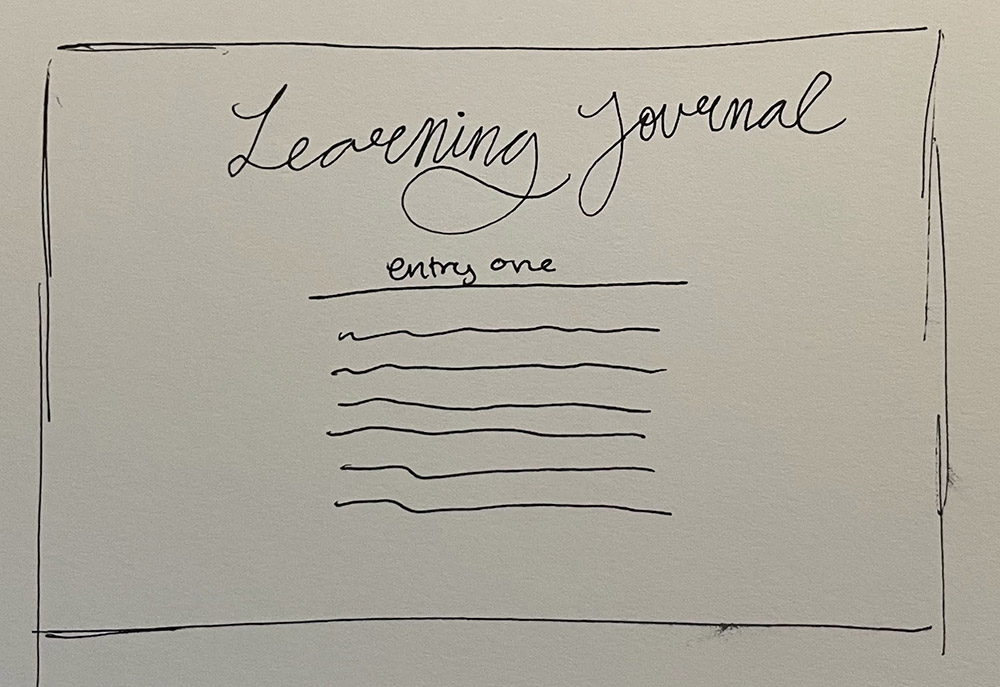 Learning Journal
entry one